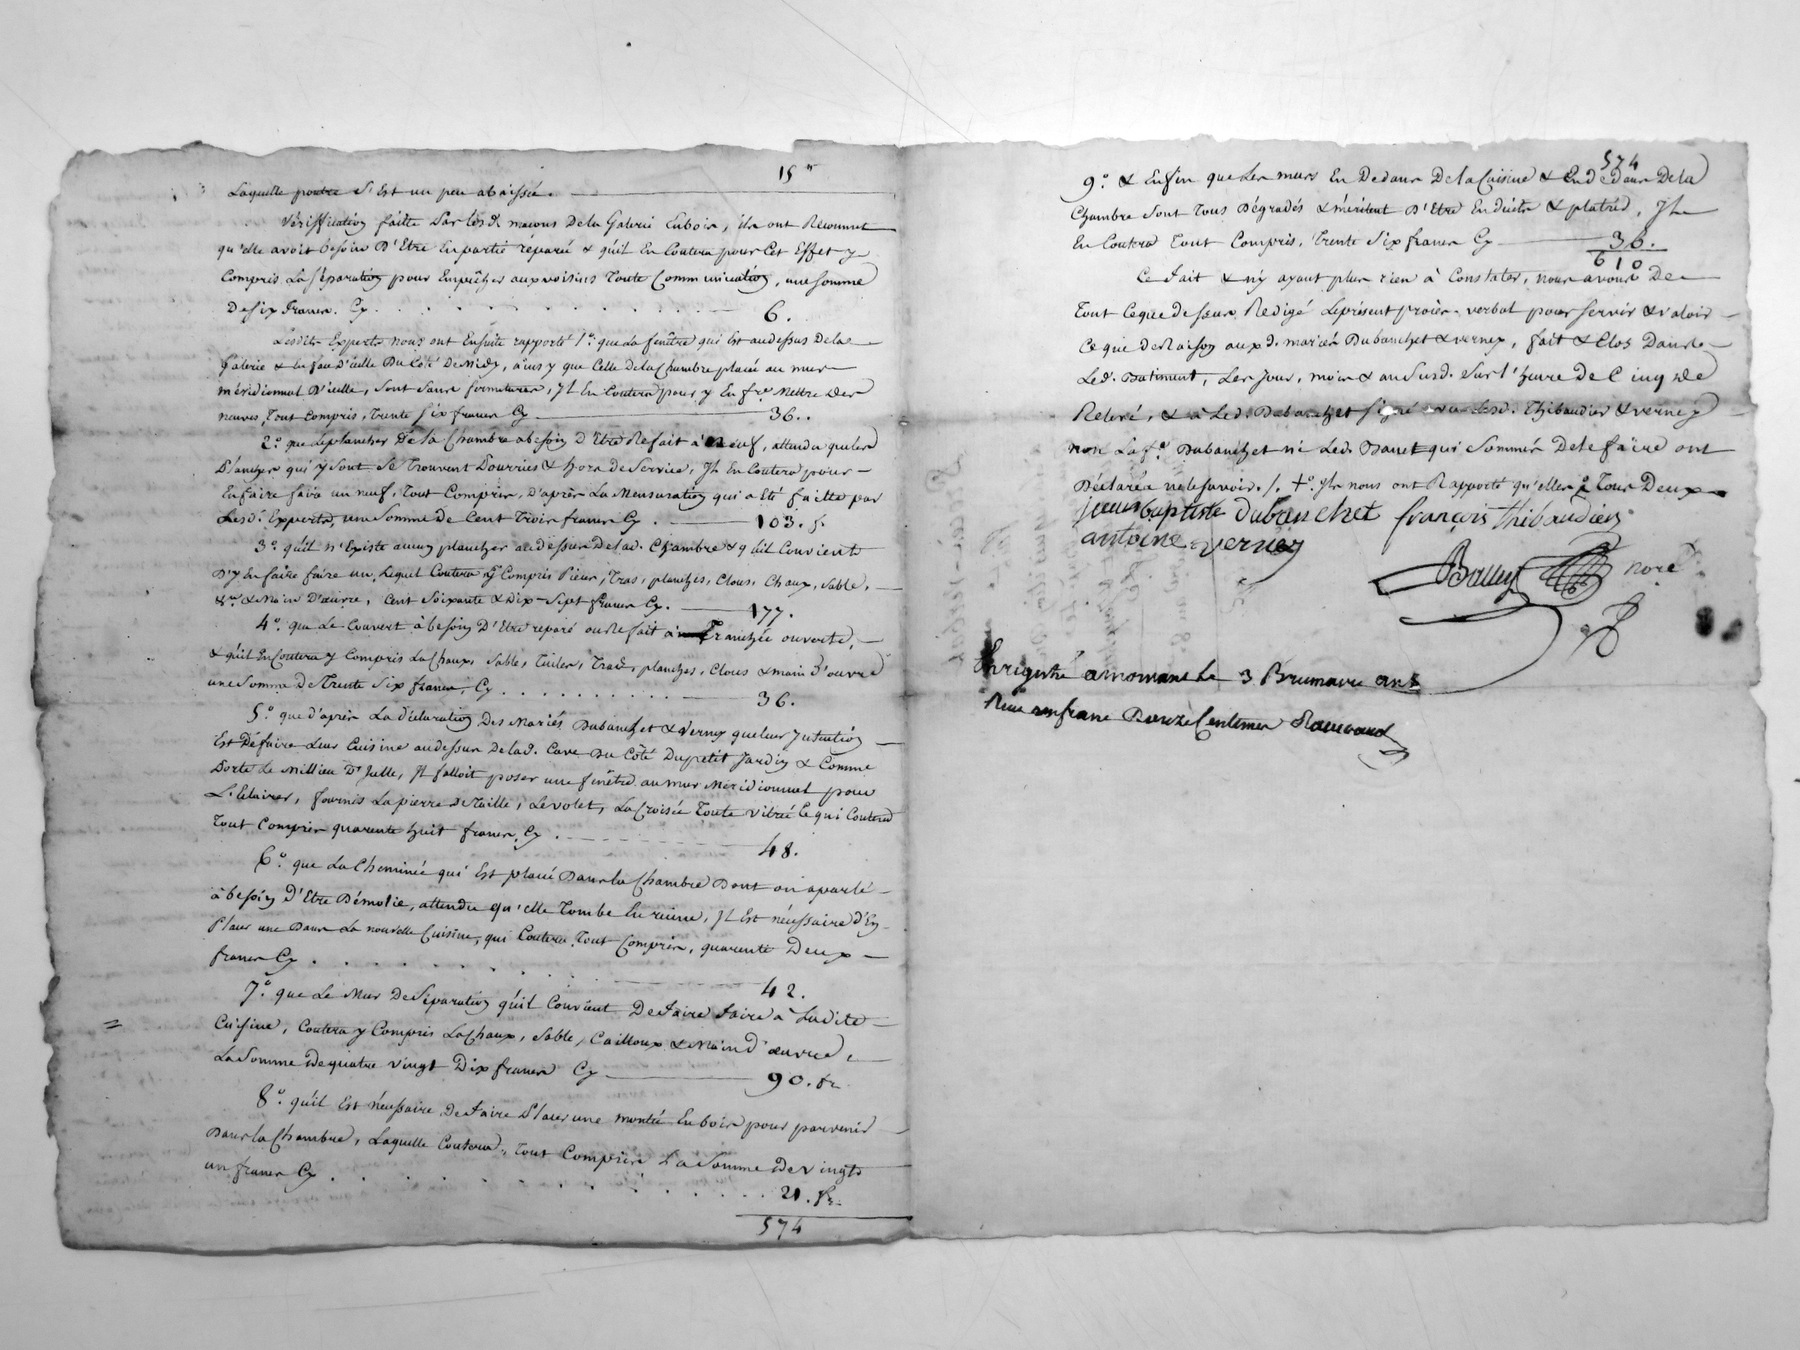 15
Laquelle poutre s'est un peu abaissée.
Vérification faitte par lesd. maçons de la Galerie en bois, ils ont Reconnut
qu'elle avoit besoin d'Etre en partie reparée & quil en Coutera pour Cet Effet y
Compris La séparation pour Enpêcher aux voisins toute Communication, une somme
de six francs. Cy 6.
Lesdits Experts nous ont Ensuite rapporté 1°. que La fenêtre qui Est au dessus de la
Galerie & en face d'icelle du Côté de midy, ainsy que Celle de la Chambre placée au mur
méridionnal d'icelle, sont sans fermetures, Il En Coutera pour y En fre Mettre des
neuves, tout compris, trente six francs Cy 36..
2°. que Le plancher de la Chambre a besoin d'être Refait à neuf, attendu que les
Planches qui y sont se trouvent Pourries & hors de service, Il En Coutera pour
En faire faire un neuf, tout Compris, d'après La Mensuration qui a Eté faitte par
Lesd. Experts, une somme de Cent trois francs Cy. 103. f.
3°. qu'il n'Existe aucun plancher au dessus de lad. Chambre & qu'il Convient
D'y En faire faire un, Lequel Coutera y Compris Pieces, tras, planches, Clous, Chaux, Sable,
& Main d'œuvre, Cent Soixante & Dix-Sept francs Cy. 177.
4°. que Le Couvert à besoin d'Etre reparé ou Refait à Tranchée ouverte,
& qu'il En Coutera y Compris La Chaux, Sable, tuiles, tras, planches, Clous & main d'œuvre
une somme de Trente Six francs, Cy 36.
5°. que d'après La déclaration Des Mariés Dubanchet & Verney que leur Intention
Est De faire Leur Cuisine au dessus de lad. Cave du Côté du petit Jardin & Comme
Porte Le Millieu d'Icelle, Il falloit poser une fenêtre au mur Méridionnal pour
L'Eclairer, fournir La pierre de taille, Le volet, La Croisée toute vitrée Ce qui Coutera
tout Compris quarente huit francs, Cy 48.
6°. que La Cheminée qui Est placée dans la Chambre dont on a parlé
à besoin d'Etre Démolie, attendu qu'elle tombe En ruine, Il Est nécessaire d'En
Placer une dans La nouvelle Cuisine, qui Coutera, tout Compris, quarente Deux
francs Cy 42.
7°. que Le Mur De Séparation qu'il Convient De faire faire à Ladite
Cuisine, Coutera y Compris La Chaux, Sable, Cailloux & Main d'œuvre,
La Somme de quatre vingt Dix francs Cy 90. fr.
8°. qu'il Est nécessaire de faire Placer une montée En bois pour parvenir
Dans la Chambre, Laquelle Coutera, tout Compris La Somme de vingt
un francs Cy 21. fr.
574
574
9°. & Enfin que Les murs En Dedans De la Cuisine & En dedans De la
Chambre sont tous Dégradés & méritent D'Etre Enduits & platrés, Il
En Coutera tout Compris, trente six francs Cy 36.
610
Ce fait & n'y ayant plus rien à Constater, nous avons De
tout Ceque dessus Redigé Le présent procès-verbal pour servir & valoir
Ce que de Raison aux d. mariés Dubanchet & verney, fait & Clos Dans
Led. Batiment, Les Jour, mois & an susd. sur l'heure de Cinq de
Relevé, & à Led. Dubanchet signé avec Lesd. Thibaudier & verney
non La fe. Dubanchet ni Led. qui sommés de le faire ont
Déclarés ne le savoir./. +°. Ils nous ont Rapporté qu'elles tous Deux
jean baptiste dubanchet françois thibaudier
antoine verney
Balley nore
Enregistré a le 3 Brumaire an
Reçu un franc Douze Centimes